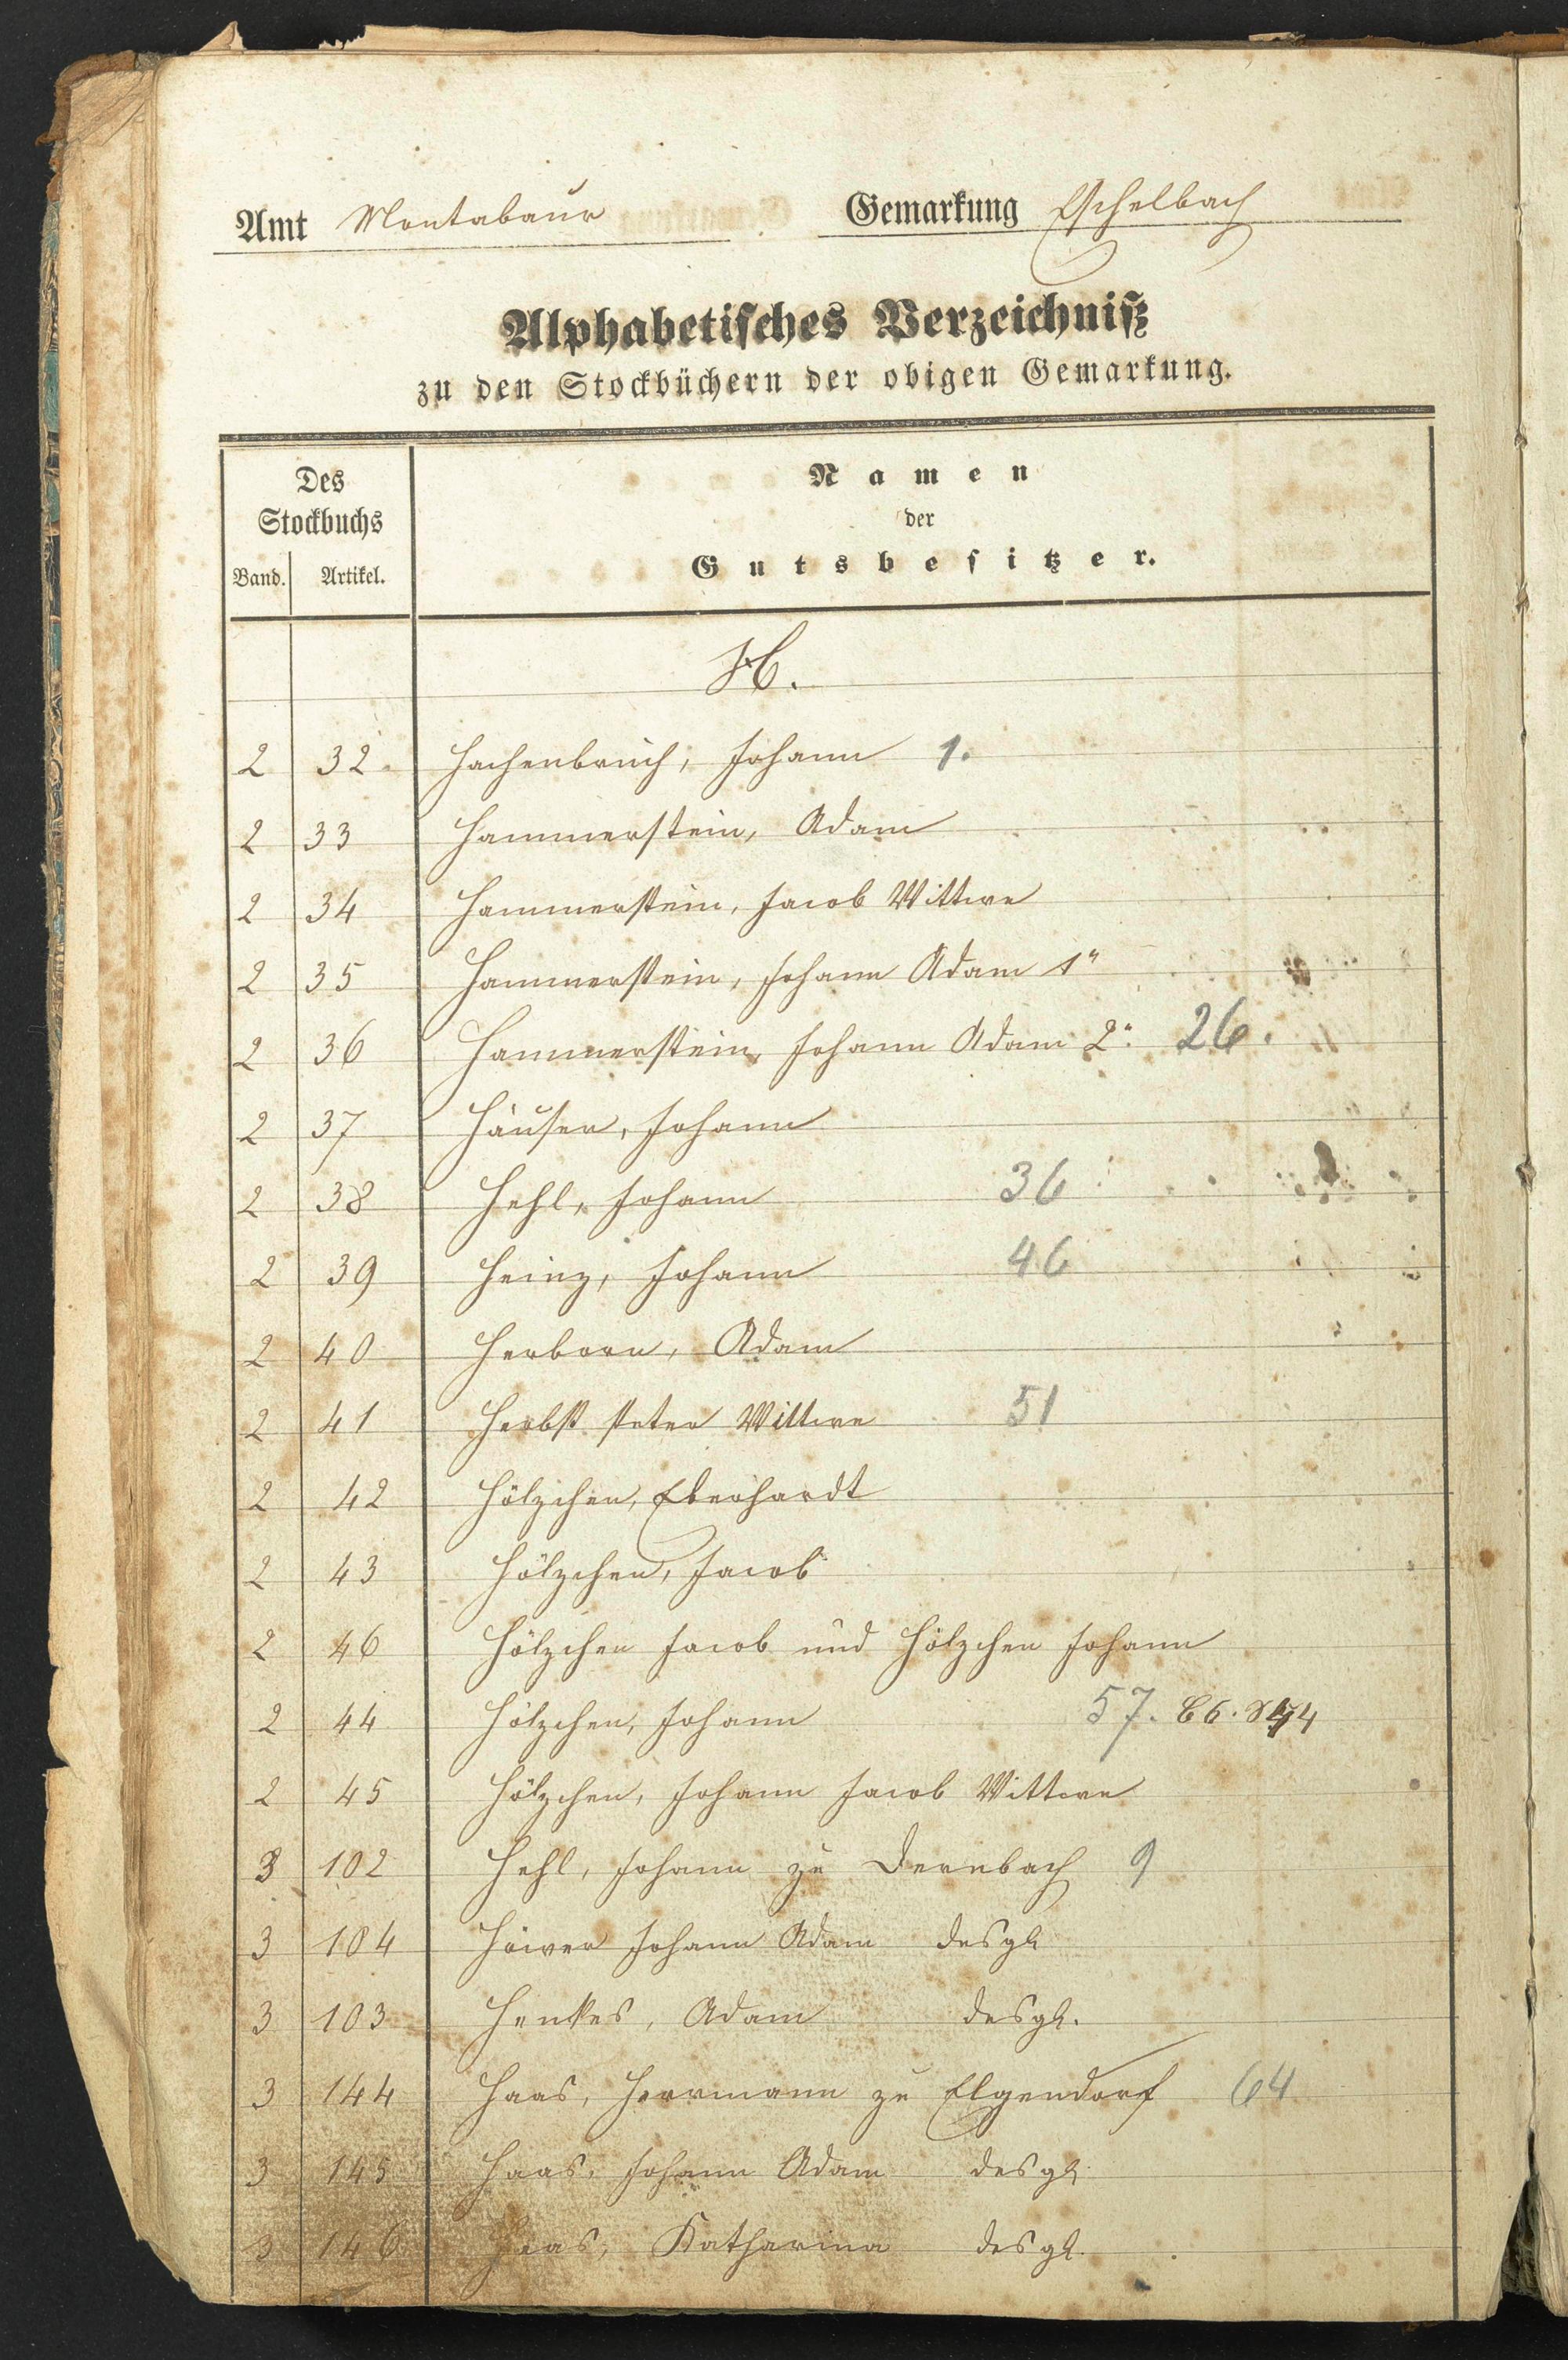 Amt Montabaur Gemarkung Eschelbach
Alphabetisches Verzeichniß
zu den Stockbüchern der obigen Gemarkung.
Des Stockbuchs
Band. Artikel.
Namen
der
Gutsbesitzer.
H.
2 32 Hachenbruch, Johann 1.
2 33 Hammerstein, Adam
2 34 Hammerstein, Jacob Wittwe
2 35 Hammerstein, Johann Adam 1r
2 36 Hammerstein, Johann Adam 2r 26.
2 37 Häuser, Johann
2 38 Hehl, Johann 36
2 39 Heinz, Johann 46
2 40 Herborn, Adam
2 41 Herbst Peter Wittwe 51
2 42 Hölzchen, Eberhardt
2 43 Hölzchen, Jacob
2 46 Hölzchen Jacob und Hölzchen Johann
2 44 Hölzchen, Johann 57.
2 45 Hölzchen, Johann Jacob Wittwe
3 102 Hehl, Johann zu Dernbach 9
3 104 Johann Adam desgl
3 103 Henkes, Adam desgl.
3 144 Haas, Herrmann zu Elgendorf 64
3 145 Haas, Johann Adam desgl.
3 146 Haas, Katharina desgl.